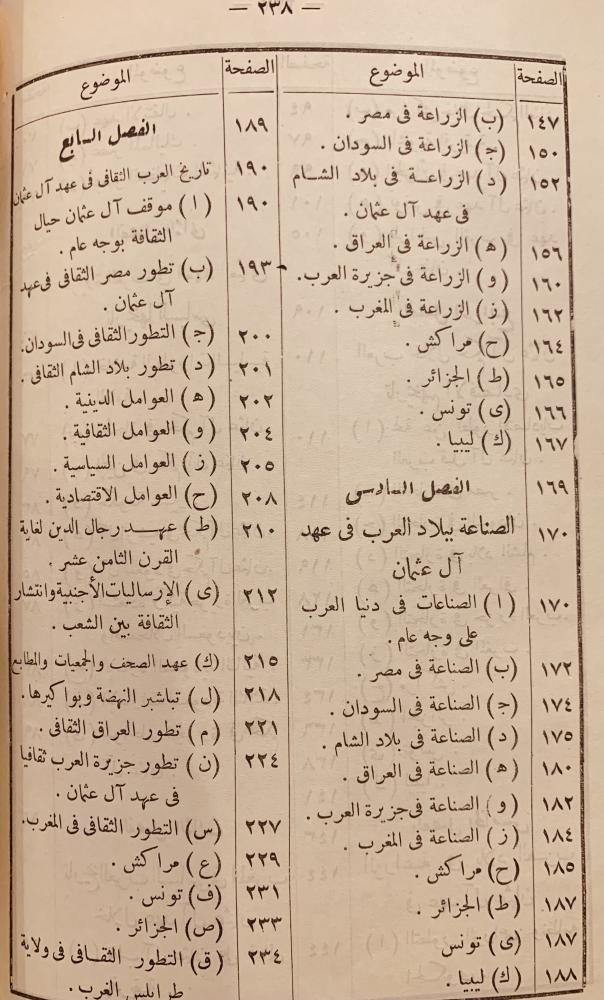 — ٢٣٨ —
الصفحة الموضوع
١٤٧ (ب) الزراعة فى مصر .
١٥٠ (ج) الزراعة فى السودان .
١٥٢ (د) الزراعــة فى بلاد الشــام
فى عهد آل عثمان .
١٥٦ (ه) الزراعة فى العراق .
١٦٠ (و) الزراعة فى جزيرة العرب.
١٦٢ (ز) الزراعة فى المغرب .
١٦٤ (ح) مراكش .
١٦٥ (ط) الجزائر .
١٦٦ (ى) تونس .
١٦٧ (ك) ليبيا .
١٦٩ الفصل السادسى
١٧٠ الصناعة ببلاد العرب فى عهد
آل عثمان
١٧٠ (ا) الصناعات فى دنيا العرب
على وجه عام .
١٧٢ (ب) الصناعة فى مصر .
١٧٤ (ج) الصناعة فى السودان .
١٧٥ (د) الصناعة فى بلاد الشام .
١٨٠ (ه) الصناعة فى العراق .
١٨٢ (و) الصناعة فى جزيرة العرب .
١٨٤ (ز) الصناعة فى المغرب .
١٨٥ (ح) مراكش .
١٨٧ (ط) الجزائر .
١٨٧ (ى) تونس
١٨٨ (ك) ليبيا .
الصفحة الموضوع
١٨٩ الفصل السابع
١٩٠ تاريخ العرب الثقافى فى عهد آل عثمان
١٩٠ (ا) موقف آل عثمان حيال
الثقافة بوجه عام .
١٩٣ (ب) تطور مصر الثقافى فى عهد
آل عثمان .
٢٠٠ (ج) التطور الثقافى فى السودان.
٢٠١ (د) تطور بلاد الشام الثقافى .
٢٠٢ (ه) العوامل الدينية .
٢٠٤ (و) العوامل الثقافية .
٢٠٥ (ز) العوامل السياسية .
٢٠٨ (ح) العوامل الاقتصادية .
٢١٠ (ط) عهــد رجال الدين لغاية
القرن الثامن عشر .
٢١٢ (ى) الإرساليات الأجنبية وانتشار
الثقافة بين الشعب .
٢١٥ (ك) عهد الصحف والجمعيات والمطابع
٢١٨ (ل) تباشير النهضة وبواكيرها .
٢٢١ (م) تطور العراق الثقافى .
٢٢٤ (ن) تطور جزيرة العرب ثقافيا
فى عهد آل عثمان .
٢٢٧ (س) التطور الثقافى فى المغرب.
٢٢٩ (ع) مراكش .
٢٣١ (ف) تونس .
٢٣٣ (ص) الجزائر .
٢٣٤ (ق) التطور الثقــافى فى ولاية
طرابلس الغرب .